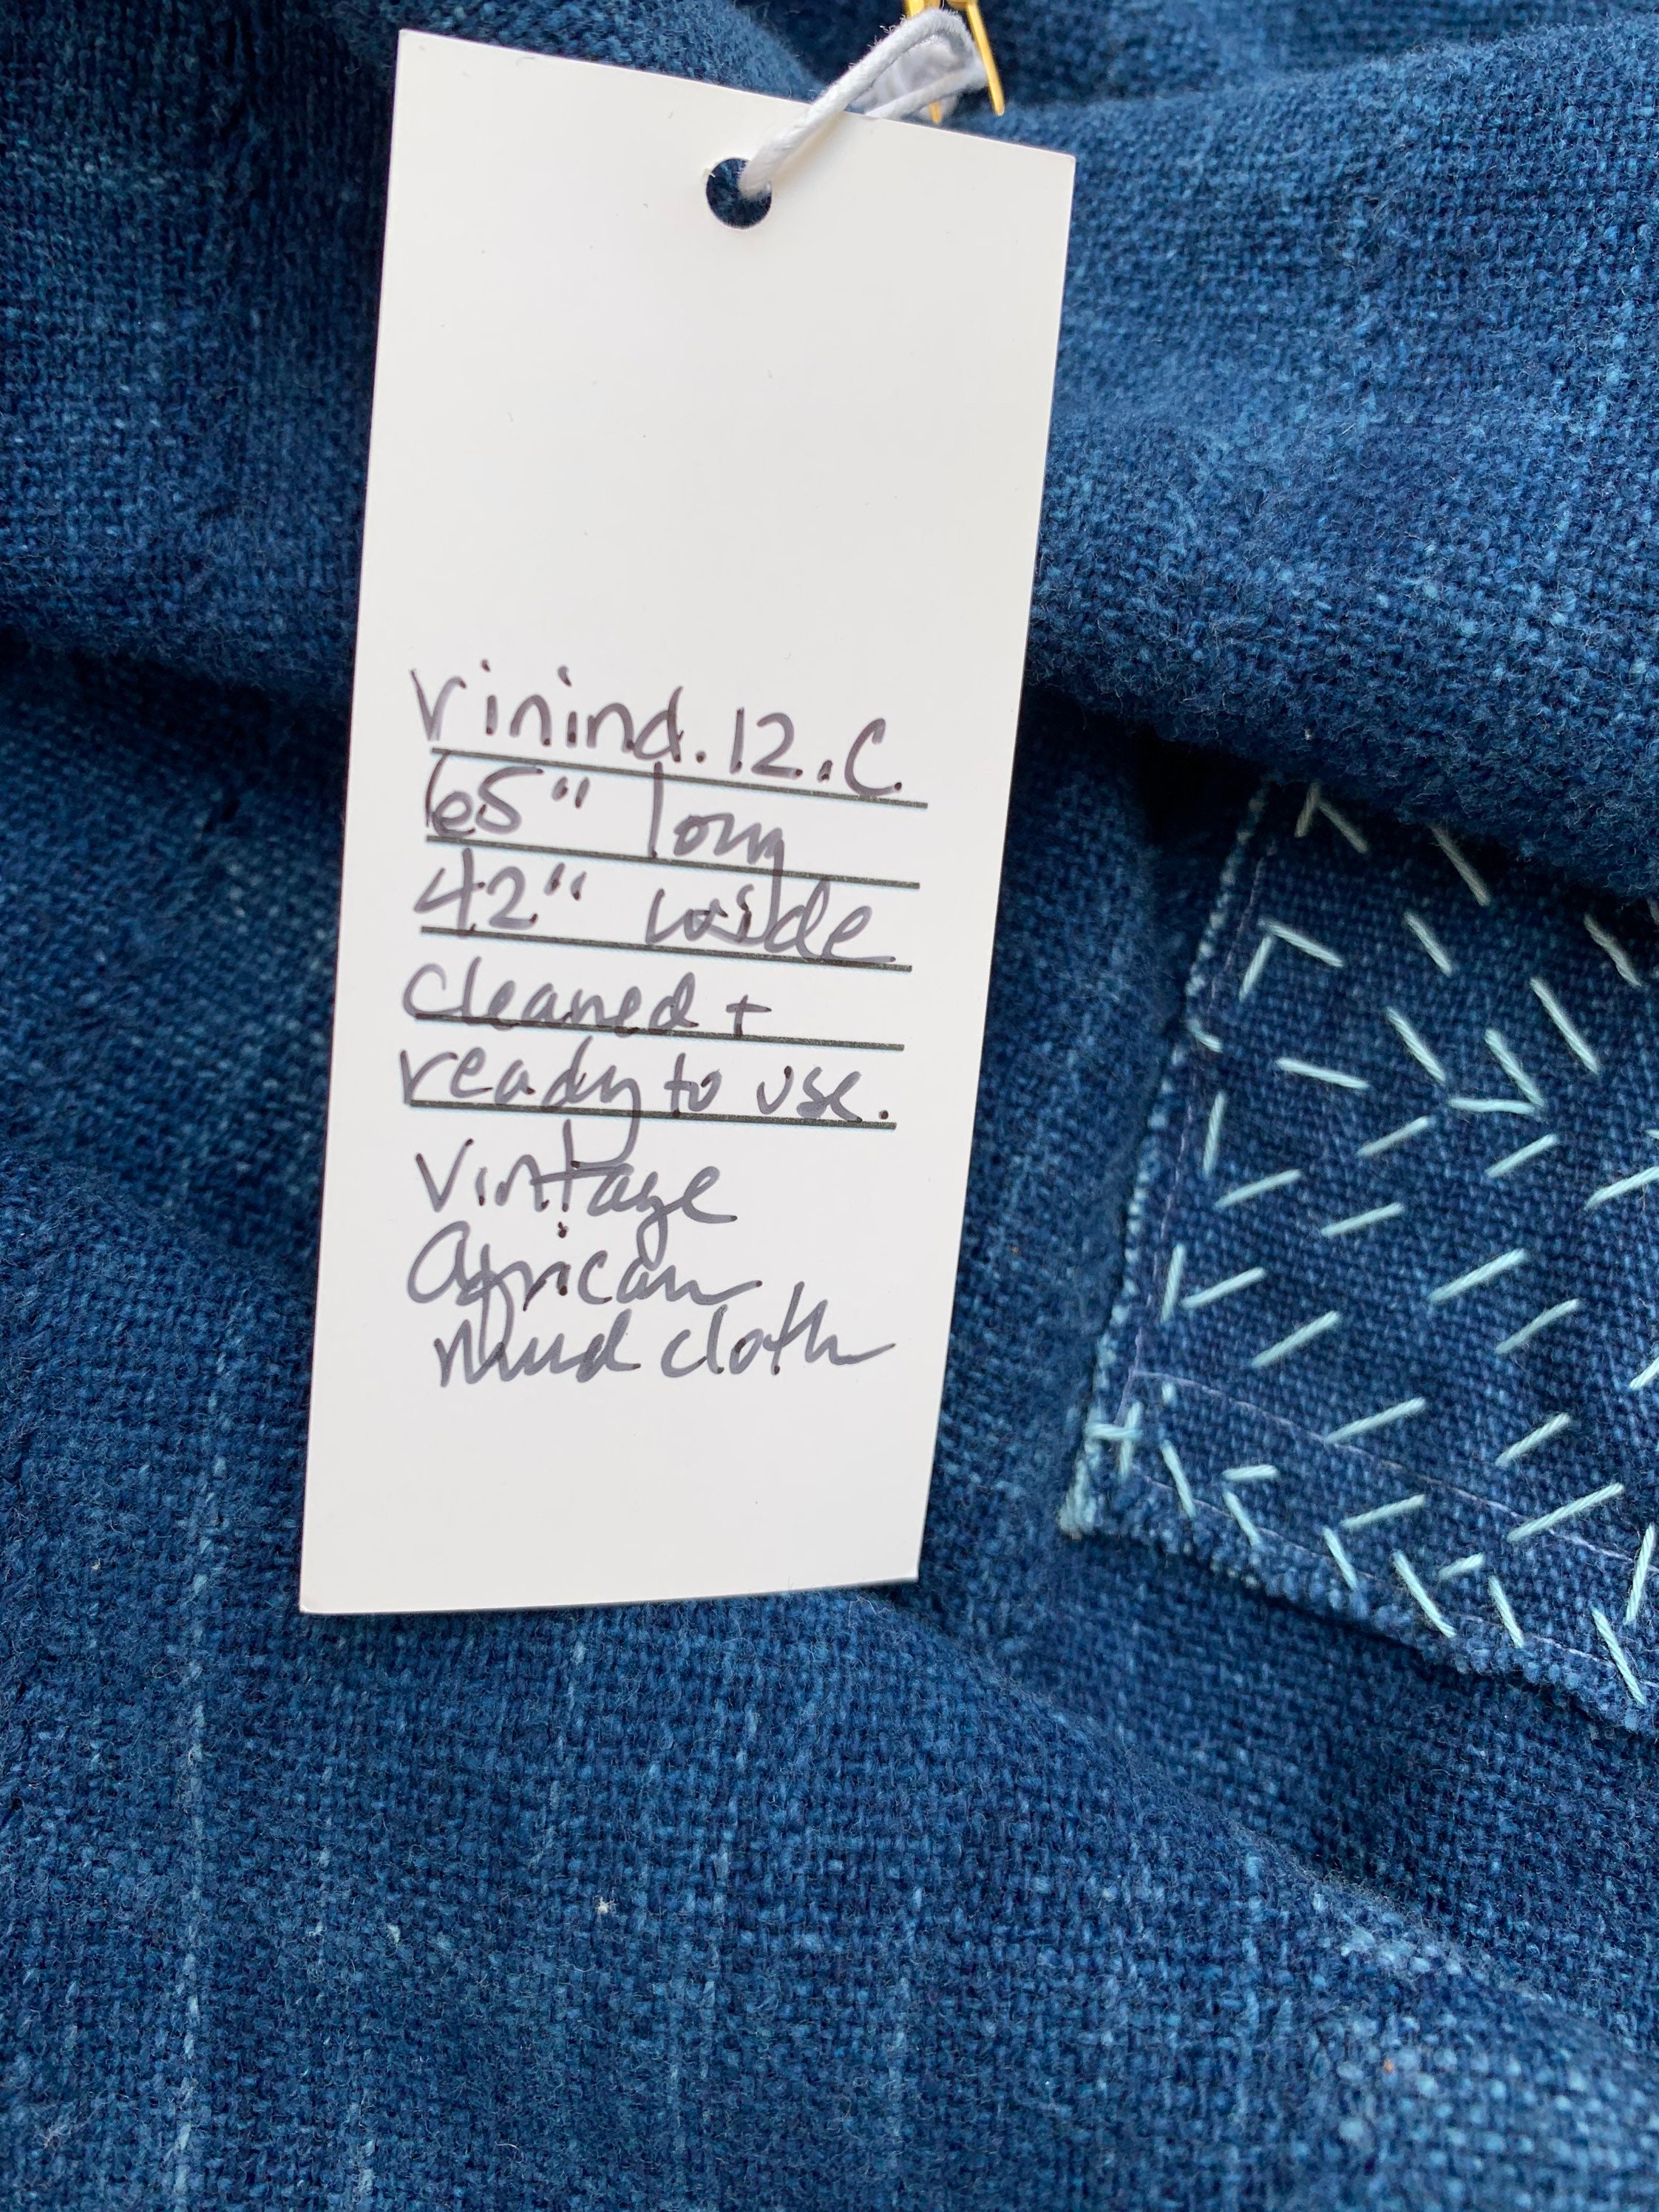 Vinind.12.C.
65" long
42" wide
Cleaned +
ready to use.
Vintage
African
Mud cloth